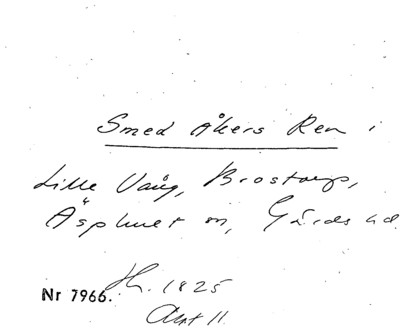 Smed Åkers Ren i
Lille Vång, Brostorp,
Äsphult sn, Gärds hd.
Nr 7966. Hh. 1825
Akt 11.